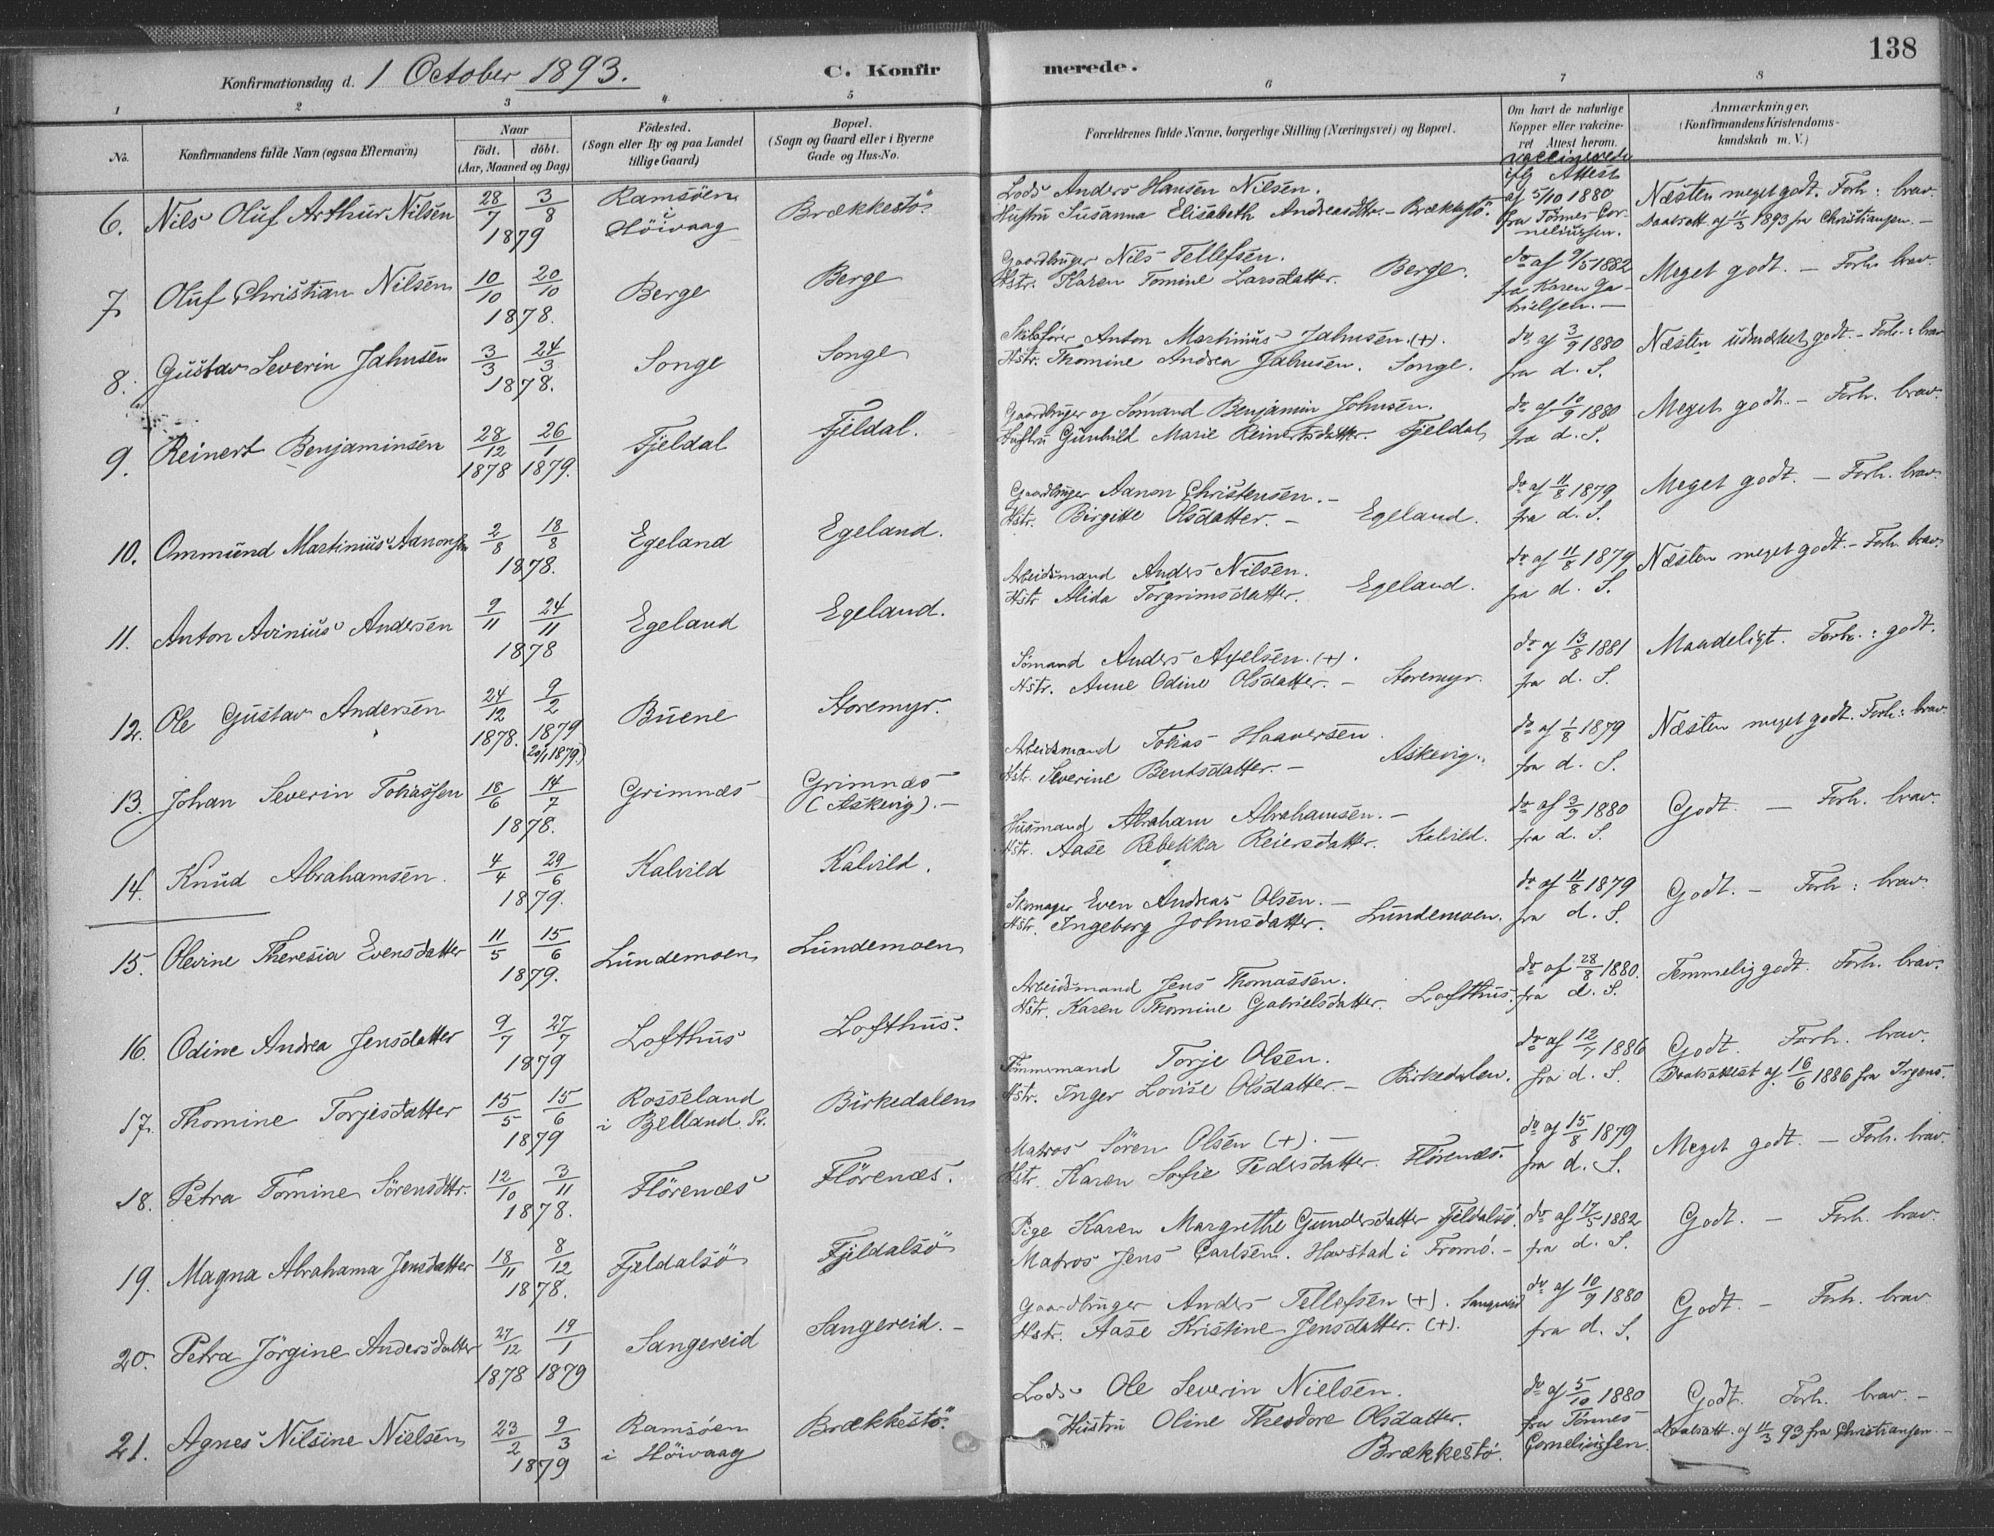 138
Konfirmationsdag d. 1 October 1893.
C. Konfirmerede.
1 2 3 4 5 6 7 8
No.
Konfirmandens fulde Navn (ogsaa Efternavn)
Naar
födt. döbt.
(Aar, Maaned og Dag)
Födested.
(Sogn eller By og paa Landet
tillige Gaard)
Bopæl.
(Sogn og Gaard eller i Byerne
Gade og Hus-No.
Forældrenes fulde Navne, borgerlige Stilling (Næringsvei) og Bopæl.
Om havt de naturlige
Kopper eller vakcine-
ret Attest herom.
Anmærkninger.
(Konfirmandens Kristendoms-
kundskab m. V.)
6. Nils Oluf Arthur Nilsen 28/7 3/8 1879 Ramsöen i Höivaag Brækkestö.
Lods Anders Hansen Nilsen.
Hustru Susanna Elisabeth Andreasdtr. - Brækkestö.
vaccinerede iflg Attest af 5/10 1880 fra Tönnes Corneliussen.
Næsten meget godt. Forh: brav.
Daabsatt. af 11/3 1893 fra Christiansen. -
7. Oluf Christian Nilsen 10/10 20/10 1878. Berge Berge
Gaardbruger Nils Tellefsen.
Hstr. Karen Tomine Larsdatter. Berge.
do af 9/5 1882 fra Karen Gabrielsen. -
Meget godt. - Forh. brav.
8. Gustav Severin Jahnsen 3/3 24/3 1878. Songe Songe
Skibsförer Anton Martinius Jahnsen (+).
Hstr. Thomine Andrea Jahnsen. Songe.
do af 3/9 1880 fra d. S.
Næsten udmærket godt - Forh.: brav
9. Reinert Benjaminsen 28/12 1878 26/1 1879. Fjeldal Fjeldal.
Gaardbruger og Sömand Benjamin Johnsen.
Hustru Gunhild Marie Reinertsdatter. Fjeldal
do af 10/9 1880 fra d. S.
Meget godt. - Forh. brav.
10. Ommund Martinius Aanonsen 2/8 18/8 1878. Egeland Egeland.
Gaardbruger Aanon Christensen. -
Hstr. Birgitte Olsdatter. - Egeland.
do af 11/8 1879 fra d. S.
Meget godt. - Forh. brav.
11. Anton Avinius Andersen 9/11 24/11 1878 Egeland Egeland.
Arbeidsmand Anders Nilsen.
Hstr Alida Torgrimsdatter. Egeland.
do af 11/8 1879 fra d. S.
Næsten meget godt. - Forh. brav.
12. Ole Gustav Andersen 24/12 1878. 9/2 1879 (20/1 1879) Buene Storemyr.
Sömand Anders Axelsen. (+).
Hstr. Anne Odine Olsdatter. - Storemyr.
do af 13/8 1881 fra d. S.
Maadeligt. Forh.: godt.
13. Johan Severin Tobiassen 18/6 14/7 1878. Grimnæs Grimnæs (Askevig). -
Arbeidsmand Tobias Haaversen.
Hstr. Severine Bentsdatter. - Askevig.
do af 1/8 1879 fra d. S.
Næsten meget godt. Forh: brav.
14. Knud Abrahamsen. 4/4 29/6 1879. Kalvild Kalvild.
Husmand Abraham Abrahamsen. -
Hstr. Aase Rebekka Reiersdatter. Kalvild.
do af 3/9 1880 fra d. S.
Godt. - Forh. brav.
15. Olevine Theresia Evensdatter 11/5 15/6 1879. Lundemoen Lundemoen
Skomager Even Andreas Olsen. -
Hstr. Ingeborg Johnsdatter. Lundemoen.
do af 11/8 1879 fra d. S.
Godt. - Forh: brav.
16. Odine Andrea Jensdatter 9/7 27/7 1879 Lofthus Lofthus.
Arbeidsmand Jens Thomassen.
Hstr. Karen Thomine Gabrielsdatter. Lofthus.
do af 28/8 1880. fra d. S.
Temmelig godt. Forh. brav.
17. Thomine Torjesdatter 15/5 15/6 1879 Rosseland i Bjelland Pr. Birkedalen
Tömmermand Torje Olsen.
Hstr. Inger Lovise Olsdatter - Birkedalen.
do af 12/7 1886 fra d. S.
Godt. Forh. brav.
Daabsattest af 16/6 1886 fra Irgens.
18. Petra Tomine Sörensdtr. 12/10 3/11 1878. Flörenæs Flörenæs.
Matros Sören Olsen (+). -
Hstr. Karen Sofie Pedersdatter. Flörenæs.
do af 15/8 1879 fra d. S.
Meget godt. - Forh. brav.
19. Magna Abrahama Jensdatter 18/11 8/12 1878. Fjeldalsö Fjeldalsö
Pige Karen Margrethe Gundersdatter Fjeldalsö.
Matros Jens Carlsen. Havstad i Tromö. -
do af 17/5 1882 fra d. S.
Godt. - Forh. brav.
20. Petra Jörgine Andersdatter 27/12 1878 19/1 1879 Sangereid Sangereid. -
Gaardbruger Anders Tellefsen (+).
Hstr. Aase Kristine Jensdatter. (+).
do af 10/9 1880 fra d. S.
Godt. - Forh. brav
21. Agnes Nilsine Nielsen 23/2 9/3 1879 Ramsöen i Höivaag Brækkestö.
Lods Ole Severin Nielsen.
Hustru Oline Theodore Olsdatter. Brækkestö.
do af 5/10 1880 fra Tönnes Corneliussen.
Godt. Forh. brav. -
Daabsatt. af 11/3 93 fra Christiansen. -